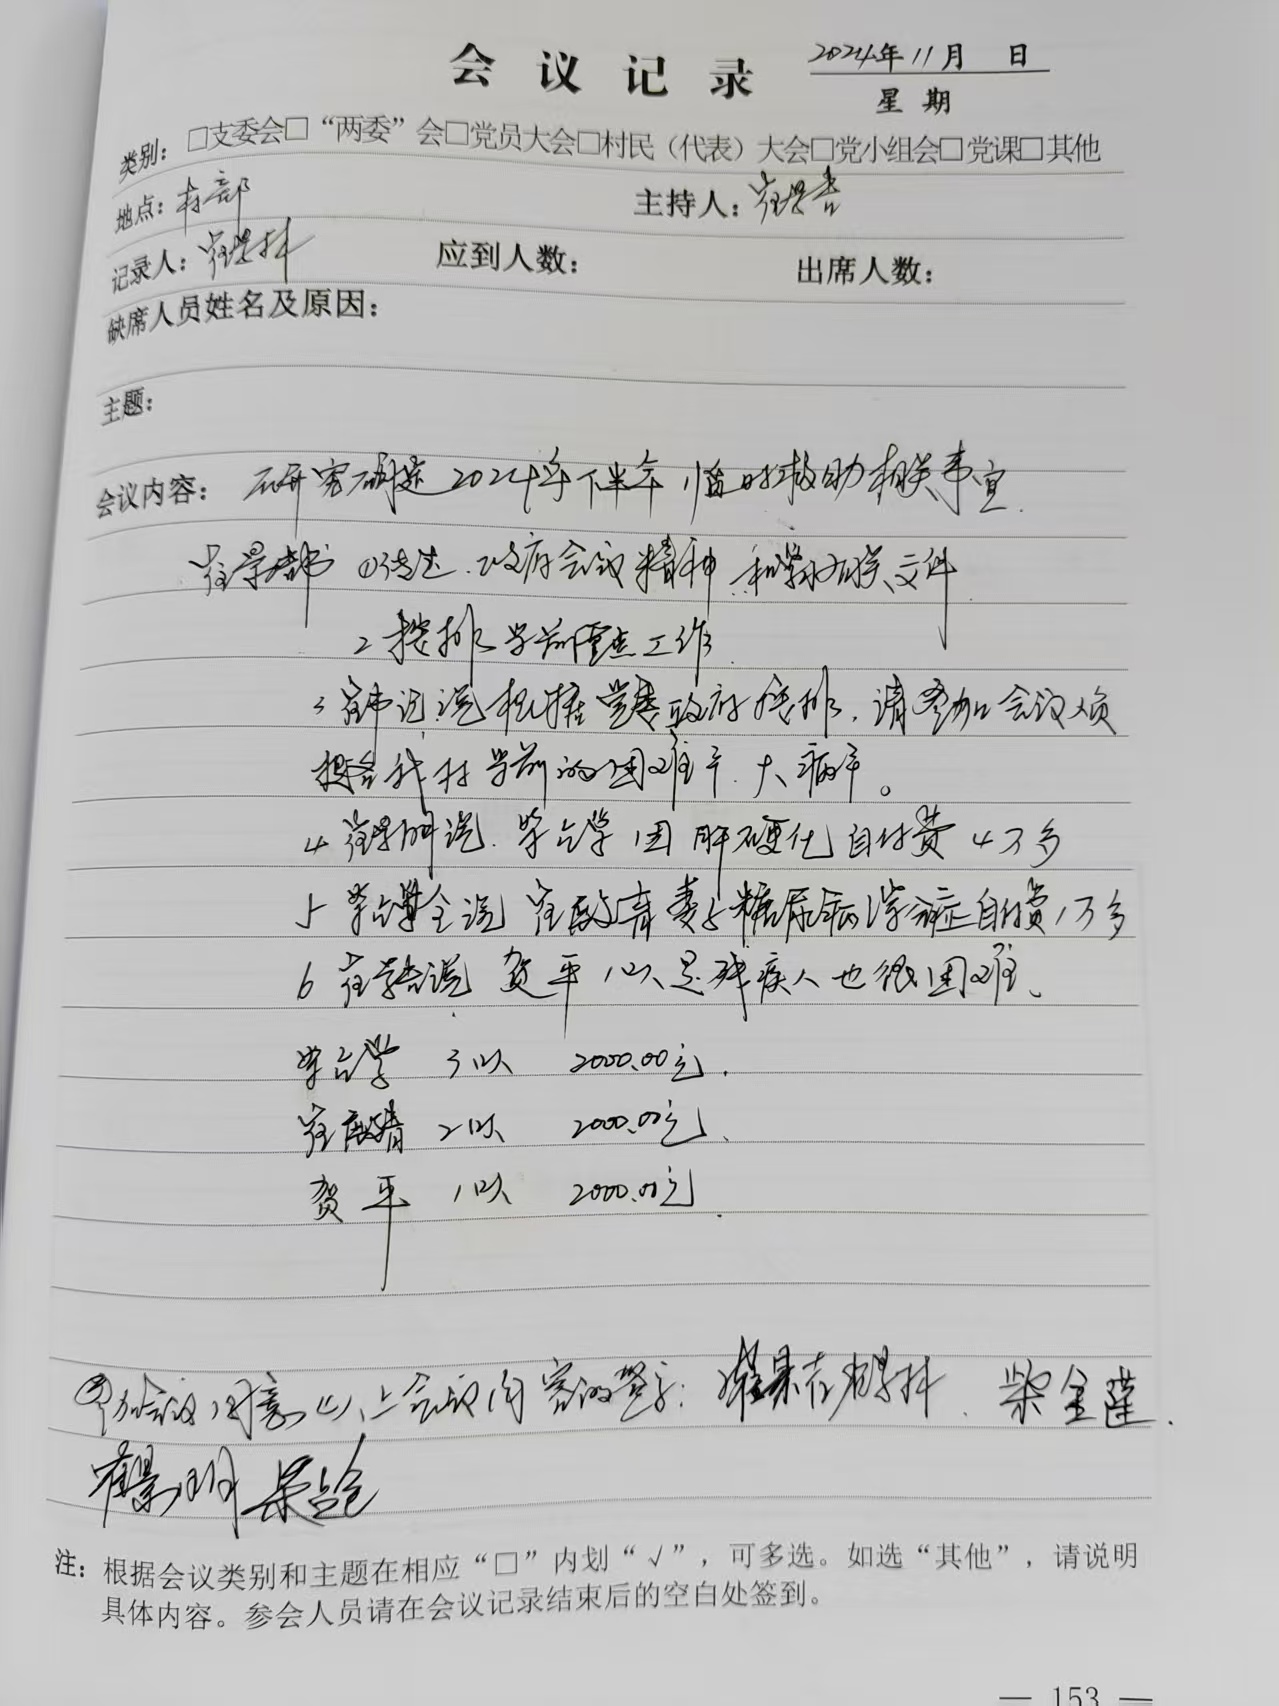 会议记录
2024年11月 日
星期
类别：□支委会□“两委”会□党员大会□村民（代表）大会□党小组会□党课□其他
地点：村部 主持人：崔景春
记录人：崔景林 应到人数： 出席人数：
缺席人员姓名及原因：
主题：
会议内容：研究确定2024年下半年临时救助相关事宜.
①传达.政府会议精神和学习相关文件
2 安排当前重点工作
3 说根据党委政府安排.请参加会议人员
提出我村当前的困难户.大病户。
4 崔景明说. 因肝硬化自付费4万多
5 说 妻子糖尿病 自付费1万多
6 说 贺平1人是残疾人也很困难、
3人 2000.00元.
2人 2000.00元、
贺平 1人 2000.00元.
参加会议同意以上会议内容的签字： 柴金莲.
崔景明
注：根据会议类别和主题在相应“□”内划“√”，可多选。如选“其他”，请说明
具体内容。参会人员请在会议记录结束后的空白处签到。
— 153 —